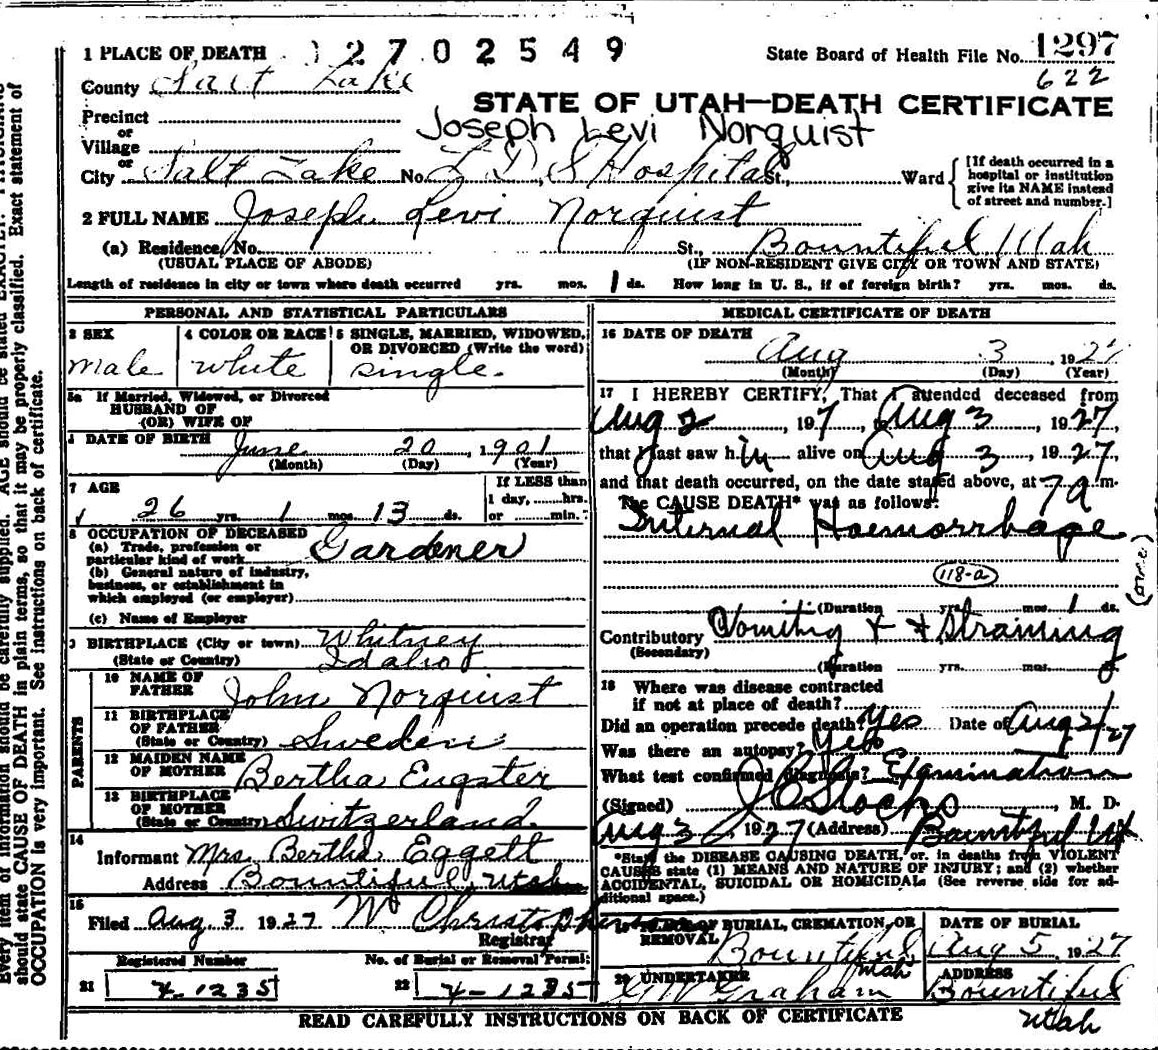 1 PLACE OF DEATH 2702549 State Board of Health File No. 1297
County Salt Lake 622
STATE OF UTAH—DEATH CERTIFICATE
Precinct
or
Joseph Levi Norquist
Village
or
City Salt Lake No. L D S Hospital St., Ward [If death occurred in a hospital or institution give its NAME instead of street and number.]
2 FULL NAME Joseph Levi Norquist
(a) Residence, No. St., Bountiful Utah
(USUAL PLACE OF ABODE) (IF NON-RESIDENT GIVE CITY OR TOWN AND STATE)
Length of residence in city or town where death occurred yrs. mos. 1 ds. How long in U. S., if of foreign birth? yrs. mos. ds.
PERSONAL AND STATISTICAL PARTICULARS
3 SEX
male
4 COLOR OR RACE
white
5 SINGLE, MARRIED, WIDOWED, OR DIVORCED (Write the word)
single.
5a If Married, Widowed, or Divorced
HUSBAND OF
(OR) WIFE OF
DATE OF BIRTH June 20, 1901
(Month) (Day) (Year)
7 AGE
26 yrs. 1 mos. 13 ds.
If LESS than
1 day, hrs.
or min.
8 OCCUPATION OF DECEASED
(a) Trade, profession or
particular kind of work Gardener
(b) General nature of industry,
business, or establishment in
which employed (or employer)
(c) Name of Employer
BIRTHPLACE (City or town) Whitney
(State or Country) Idaho
PARENTS
10 NAME OF
FATHER John Norquist
11 BIRTHPLACE
OF FATHER
(State or Country) Sweden
12 MAIDEN NAME
OF MOTHER Bertha Eugster
13 BIRTHPLACE
OF MOTHER
(State or Country) Switzerland.
14
Informant Mrs. Bertha Eggett
Address Bountiful, Utah
15
Filed Aug 3 1927 W Christopherson
Registrar
Registered Number No. of Burial or Removal Permit
21 4-1235 22 4-1235
MEDICAL CERTIFICATE OF DEATH
16 DATE OF DEATH
Aug 3, 1927
(Month) (Day) (Year)
17 I HEREBY CERTIFY, That I attended deceased from
Aug 2, 197, Aug 3, 1927,
that I last saw him alive on Aug 3, 1927,
and that death occurred, on the date stated above, at 7 a.m.
The CAUSE DEATH* was as follows:
Internal Haemorrhage
118-a
(Duration yrs. mos. 1 ds.
Contributory Vomiting & & Straining
(Secondary)
(Duration yrs. mos.
18 Where was disease contracted
if not at place of death?
Did an operation precede death? Yes Date of Aug 2/27
Was there an autopsy? Yes
What test confirmed diagnosis? Examination
(Signed) J C Stocks, M. D.
Aug 3, 1927 (Address) Bountiful Ut
*State the DISEASE CAUSING DEATH, or, in deaths from VIOLENT
CAUSES state (1) MEANS AND NATURE OF INJURY; and (2) whether
ACCIDENTAL, SUICIDAL OR HOMICIDAL. (See reverse side for additional space.)
19 PLACE OF BURIAL, CREMATION, OR
REMOVAL Bountiful Utah
DATE OF BURIAL
Aug 5, 1927
20 UNDERTAKER
G W Graham
ADDRESS
Bountiful
Utah
READ CAREFULLY INSTRUCTIONS ON BACK OF CERTIFICATE
should state CAUSE OF DEATH in plain terms, so that it may be properly classified. Exact statement of
OCCUPATION is very important. See instructions on back of certificate.